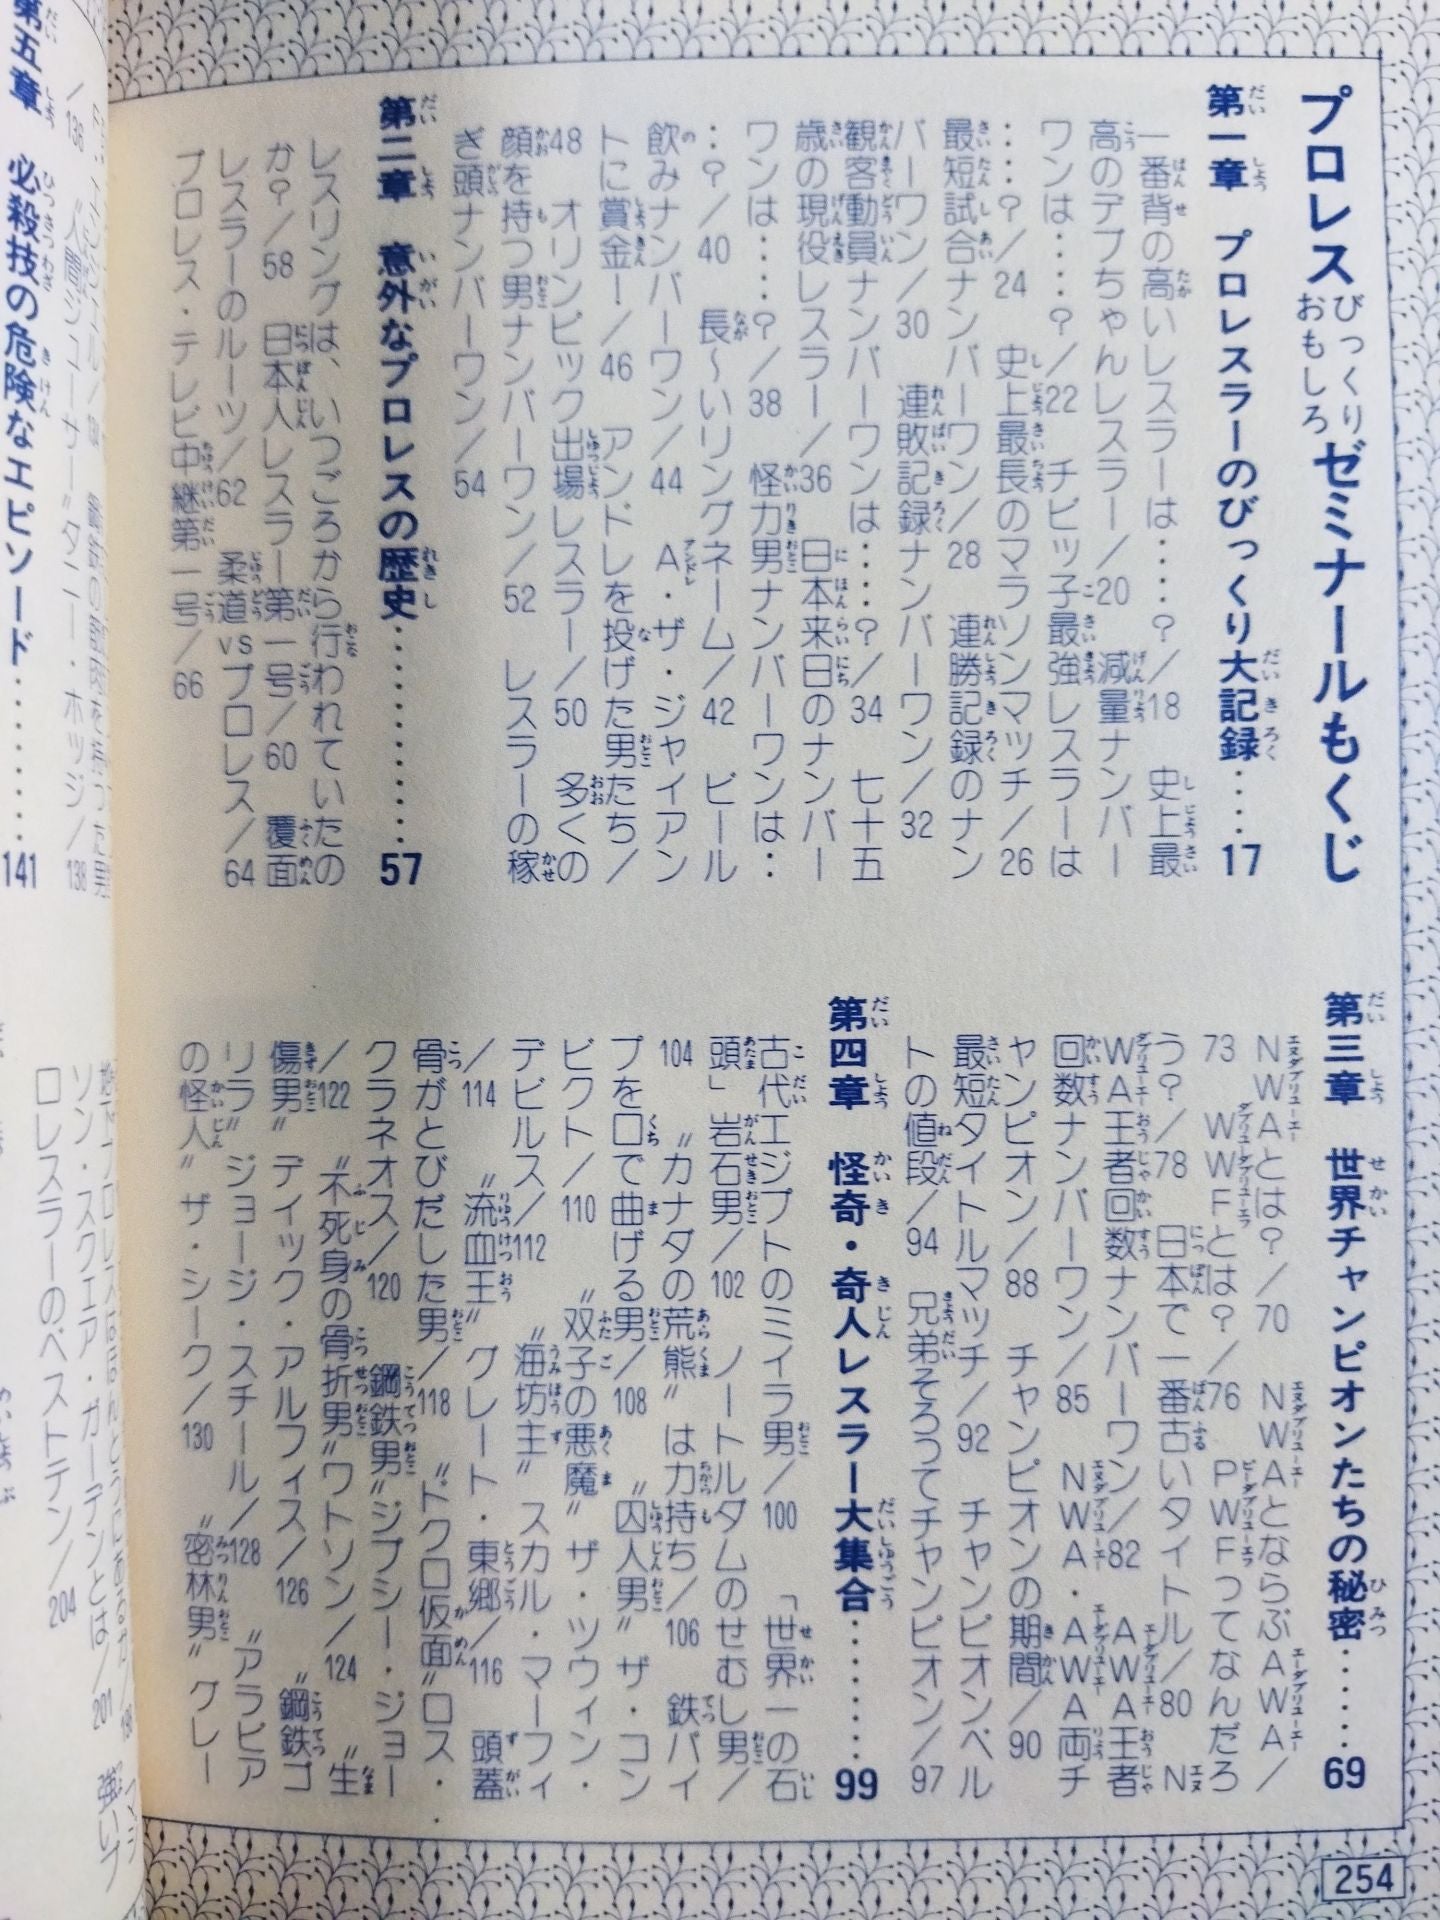 プロレスびっくりおもしろゼミナールもくじ
第一章 プロレスラーのびっくり大記録‥‥17
一番背の高いレスラーは‥‥?/18 史上最
高のデブちゃんレスラー/20 減量ナンバー
ワンは‥‥?/22 チビッ子最強レスラーは
‥‥?/24 史上最長のマラソンマッチ/26
最短試合ナンバーワン/28 連勝記録のナン
バーワン/30 連敗記録ナンバーワン/32
観客動員ナンバーワンは‥‥?/34 七十五
歳の現役レスラー/36 日本来日のナンバー
ワンは‥‥?/38 怪力男ナンバーワンは‥
‥?/40 長〜いリングネーム/42 ビール
飲みナンバーワン/44 A・ザ・ジャイアン
トに賞金!/46 アンドレを投げた男たち/
48 オリンピック出場レスラー/50 多くの
顔を持つ男ナンバーワン/52 レスラーの稼
ぎ頭ナンバーワン/54
第二章 意外なプロレスの歴史‥‥‥‥‥‥57
レスリングは、いつごろから行われていたの
か?/58 日本人レスラー第一号/60 覆面
レスラーのルーツ/62 柔道vsプロレス/64
プロレス・テレビ中継第一号/66
第三章 世界チャンピオンたちの秘密‥‥‥69
NWAとは?/70 NWAとならぶAWA/
73 WWFとは?/76 PWFってなんだろ
う?/78 日本で一番古いタイトル/80 N
WA王者回数ナンバーワン/82 AWA王者
回数ナンバーワン/85 NWA・AWA両チ
ャンピオン/88 チャンピオンの期間/90
最短タイトルマッチ/92 チャンピオンベル
トの値段/94 兄弟そろってチャンピオン/97
第四章 怪奇・奇人レスラー大集合‥‥‥‥99
古代エジプトのミイラ男/100 「世界一の石
頭」岩石男/102 ノートルダムのせむし男/
104 〝カナダの荒熊〟は力持ち/106 鉄パイ
プを口で曲げる男/108 〝囚人男〟ザ・コン
ビクト/110 〝双子の悪魔〟ザ・ツウィン・
デビルス/112 〝海坊主〟スカル・マーフィ
/114 〝流血王〟グレート・東郷/116 頭蓋
骨がとびだした男/118 〝ドクロ仮面〟ロス・
クラネオス/120 〝鋼鉄男〟ジプシー・ジョー
/122 〝不死身の骨折男〟ワトソン/124 〝生
傷男〟ディック・アルフィス/126 〝鋼鉄ゴ
リラ〟ジョージ・スチール/128 〝アラビア
の怪人〟ザ・シーク/130 〝密林男〟グレー
254
/136 〝人間ジューサー〟ダニー・ホッジ/138
第五章 必殺技の危険なエピソード‥‥‥‥141
ソン・スクエア・ガーデンとは/201 強いプ
ロレスラーのベストテン/204